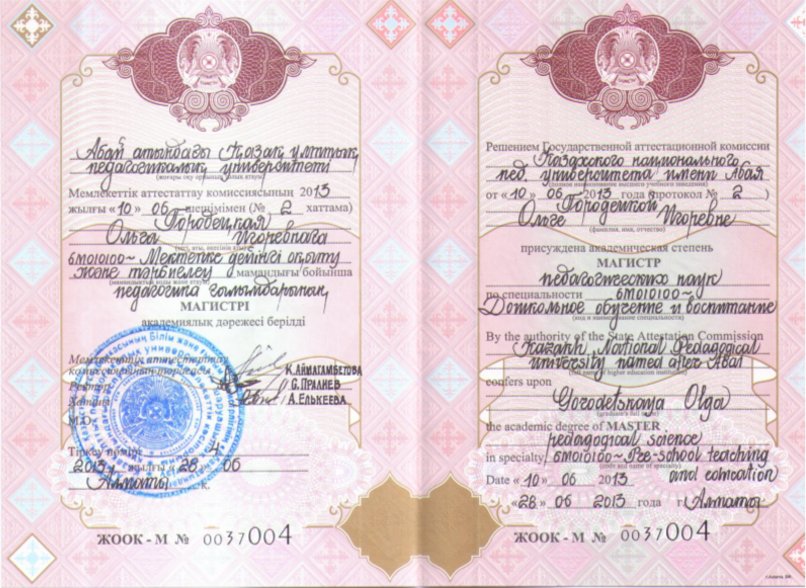 Абай атындағы Қазақ ұлттық
педагогикалық университеті
(жоғары оқу орнының толық атауы)
Мемлекеттік аттестаттау комиссиясының 2013
жылғы «10» 06 шешімімен (№ 2 хаттама)
Городецкая
Ольга Игоревнаға
(тегі, аты, әкесінің аты)
6М010100~ Мектепке дейінгі оқыту
және тәрбиелеу мамандығы бойынша
(мамандықтың коды және атауы)
педагогика ғылымдарының
МАГИСТРІ
академиялық дәрежесі берілді
Мемлекеттік аттестаттау
комиссиясының төрағасы К.АЙМАГАМБЕТОВА
Ректор С.ПРАЛИЕВ
Хатшы А.ЕЛЬКЕЕВА
М.О.
Тіркеу нөмірі 4
2013 жылғы «28» 06
Алматы қ.
ЖООК - М № 0037004
Решением Государственной аттестационной комиссии
Казахского национального
пед. университета имени Абая
(полное наименование высшего учебного заведения)
от «10» 06 2013 года (протокол № 2)
Городецкой
Ольге Игоревне
(фамилия, имя, отчество)
присуждена академическая степень
МАГИСТР
педагогических наук
по специальности 6М010100~
Дошкольное обучение и воспитание
(код и наименование специальности)
By the authority of the State Attestation Commission
Kazakh National Pedagogical
university named after Abai
(full name of higher education institution)
confers upon
Gorodetskaya Olga
(graduate's full name)
the academic degree of MASTER
pedagogical science
in specialty 6M010100~ Pre-school teaching
(code and name of specialty)
and education
Date «10» 06 2013
«28» 06 2013 года г. Алматы
ЖООК - М № 0037004